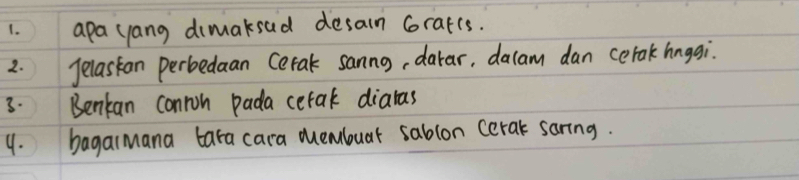 1. apa yang dimaksud desain Grafis.
2. Jelaskan perbedaan Cetak saring, datar, dalam dan cetak tinggi.
3. Berikan contoh pada cetak diatas
4. bagaimana tata cara membuat sablon cetak saring.